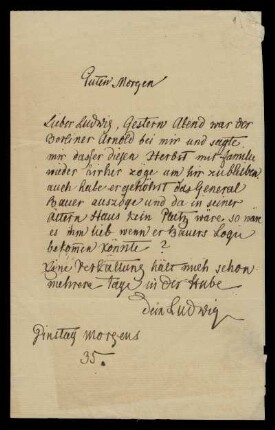 1.
Guten Morgen
Lieber Ludwig, Gestern Abend war der
Berliner Arnold bei mir und sagte
mir daß er diesen Herbst mit Familie
wieder hirher zöge um hir zu bleiben
auch habe er gehöhrt das General
Bauer auszöge und da in seiner
Ältern Haus kein Platz wäre so wär
es ihm lieb wenn er Bauers Logis
bekomen könnte?
Eine Verkältung hält mich schon
mehrere Tage in der Stube
Dein Ludwig
Dinstag Morgens
35.